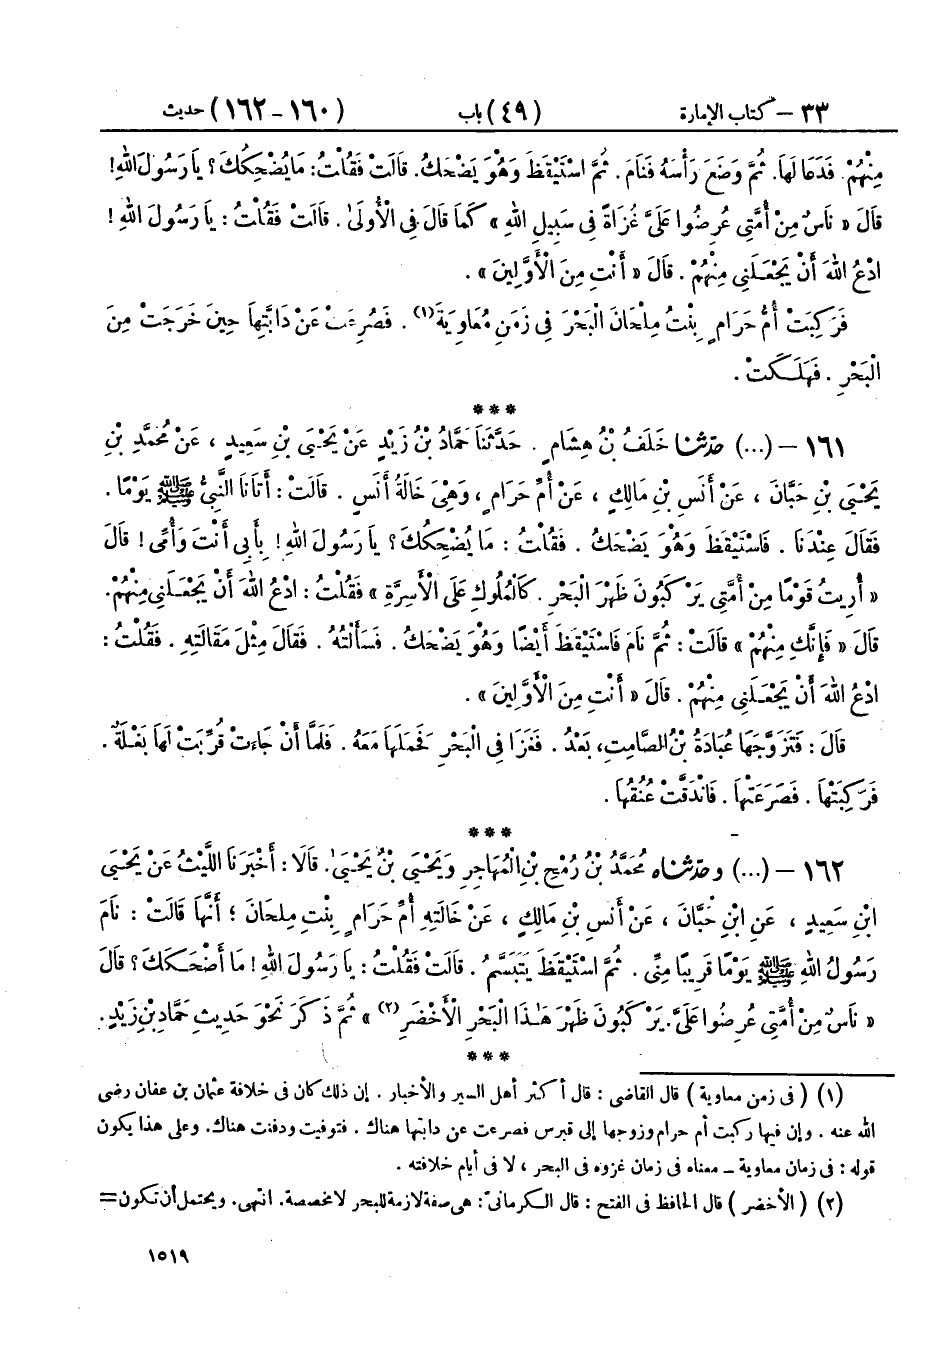 ٣٣ – كتاب الإمارة (٤٩) باب (١٦٠ – ١٦٢) حديث
مِنْهُمْ. فَدَعَا لَهَا. ثُمَّ وَضَعَ رَأْسَهُ فَنَامَ. ثُمَّ اسْتَيْقَظَ وَهُوَ يَضْحَكُ. قَالَتْ فَقُلْتُ: مَا يُضْحِكُكَ؟ يَا رَسُولَ اللهِ!
قَالَ « نَاسٌ مِنْ أُمَّتِي عُرِضُوا عَلَىَّ غُزَاةً فِي سَبِيلِ اللهِ » كَمَا قَالَ فِي الْأُولَىٰ. قَالَتْ فَقُلْتُ: يَا رَسُولَ اللهِ!
ادْعُ اللهَ أَنْ يَجْعَلَنِي مِنْهُمْ. قَالَ « أَنْتِ مِنَ الْأَوَّلِينَ ».
فَرَكِبَتْ أُمُّ حَرَامٍ بِنْتُ مِلْحَانَ الْبَحْرَ فِي زَمَنِ مُعَاوِيَةَ(١). فَصُرِعَتْ عَنْ دَابَّتِهَا حِينَ خَرَجَتْ مِنَ
الْبَحْرِ. فَهَلَكَتْ.
***
١٦١ – (...) حدثنا خَلَفُ بْنُ هِشَامٍ. حَدَّثَنَا حَمَّادُ بْنُ زَيْدٍ عَنْ يَحْيَىٰ بْنِ سَعِيدٍ، عَنْ مُحَمَّدِ بْنِ
يَحْيَىٰ بْنِ حَبَّانَ، عَنْ أَنَسِ بْنِ مَالِكٍ، عَنْ أُمِّ حَرَامٍ، وَهِيَ خَالَةُ أَنَسٍ. قَالَتْ: أَتَانَا النَّبِيُّ ﷺ يَوْمًا.
فَقَالَ عِنْدَنَا. فَاسْتَيْقَظَ وَهُوَ يَضْحَكُ. فَقُلْتُ: مَا يُضْحِكُكَ؟ يَا رَسُولَ اللهِ! بِأَبِي أَنْتَ وَأُمِّي! قَالَ
« أُرِيتُ قَوْمًا مِنْ أُمَّتِي يَرْكَبُونَ ظَهْرَ الْبَحْرِ. كَالْمُلُوكِ عَلَى الْأَسِرَّةِ » فَقُلْتُ: ادْعُ اللهَ أَنْ يَجْعَلَنِي مِنْهُمْ.
قَالَ « فَإِنَّكِ مِنْهُمْ » قَالَتْ: ثُمَّ نَامَ فَاسْتَيْقَظَ أَيْضًا وَهُوَ يَضْحَكُ. فَسَأَلْتُهُ. فَقَالَ مِثْلَ مَقَالَتِهِ. فَقُلْتُ:
ادْعُ اللهَ أَنْ يَجْعَلَنِي مِنْهُمْ. قَالَ « أَنْتِ مِنَ الْأَوَّلِينَ ».
قَالَ: فَتَزَوَّجَهَا عُبَادَةُ بْنُ الصَّامِتِ، بَعْدُ. فَغَزَا فِي الْبَحْرِ فَحَمَلَهَا مَعَهُ. فَلَمَّا أَنْ جَاءَتْ قُرِّبَتْ لَهَا بَغْلَةٌ.
فَرَكِبَتْهَا. فَصَرَعَتْهَا. فَانْدَقَّتْ عُنُقُهَا.
***
١٦٢ – (...) وحدثناه مُحَمَّدُ بْنُ رُمْحِ بْنِ الْمُهَاجِرِ وَيَحْيَىٰ بْنُ يَحْيَىٰ. قَالَا: أَخْبَرَنَا اللَّيْثُ عَنْ يَحْيَىٰ
ابْنِ سَعِيدٍ، عَنِ ابْنِ حَبَّانَ، عَنْ أَنَسِ بْنِ مَالِكٍ، عَنْ خَالَتِهِ أُمِّ حَرَامٍ بِنْتِ مِلْحَانَ؛ أَنَّهَا قَالَتْ: نَامَ
رَسُولُ اللهِ ﷺ يَوْمًا قَرِيبًا مِنِّي. ثُمَّ اسْتَيْقَظَ يَتَبَسَّمُ. قَالَتْ فَقُلْتُ: يَا رَسُولَ اللهِ! مَا أَضْحَكَكَ؟ قَالَ
« نَاسٌ مِنْ أُمَّتِي عُرِضُوا عَلَىَّ. يَرْكَبُونَ ظَهْرَ هَٰذَا الْبَحْرِ الْأَخْضَرِ(٢) » ثُمَّ ذَكَرَ نَحْوَ حَدِيثِ حَمَّادِ بْنِ زَيْدٍ.
***
(١) (في زمن معاوية) قال القاضي: قال أكثر أهل السير والأخبار. إن ذلك كان في خلافة عثمان بن عفان رضى
الله عنه. وإن فيها ركبت أم حرام وزوجها إلى قبرس فصرعت عن دابتها هناك. فتوفيت ودفنت هناك. وعلى هذا يكون
قوله: في زمان معاوية – معناه في زمان غزوه في البحر، لا في أيام خلافته.
(٢) (الأخضر) قال الحافظ في الفتح: قال الكرماني: هي صفة لازمة للبحر لا مخصصة. انتهى. ويحتمل أن تكون=
١٥١٩